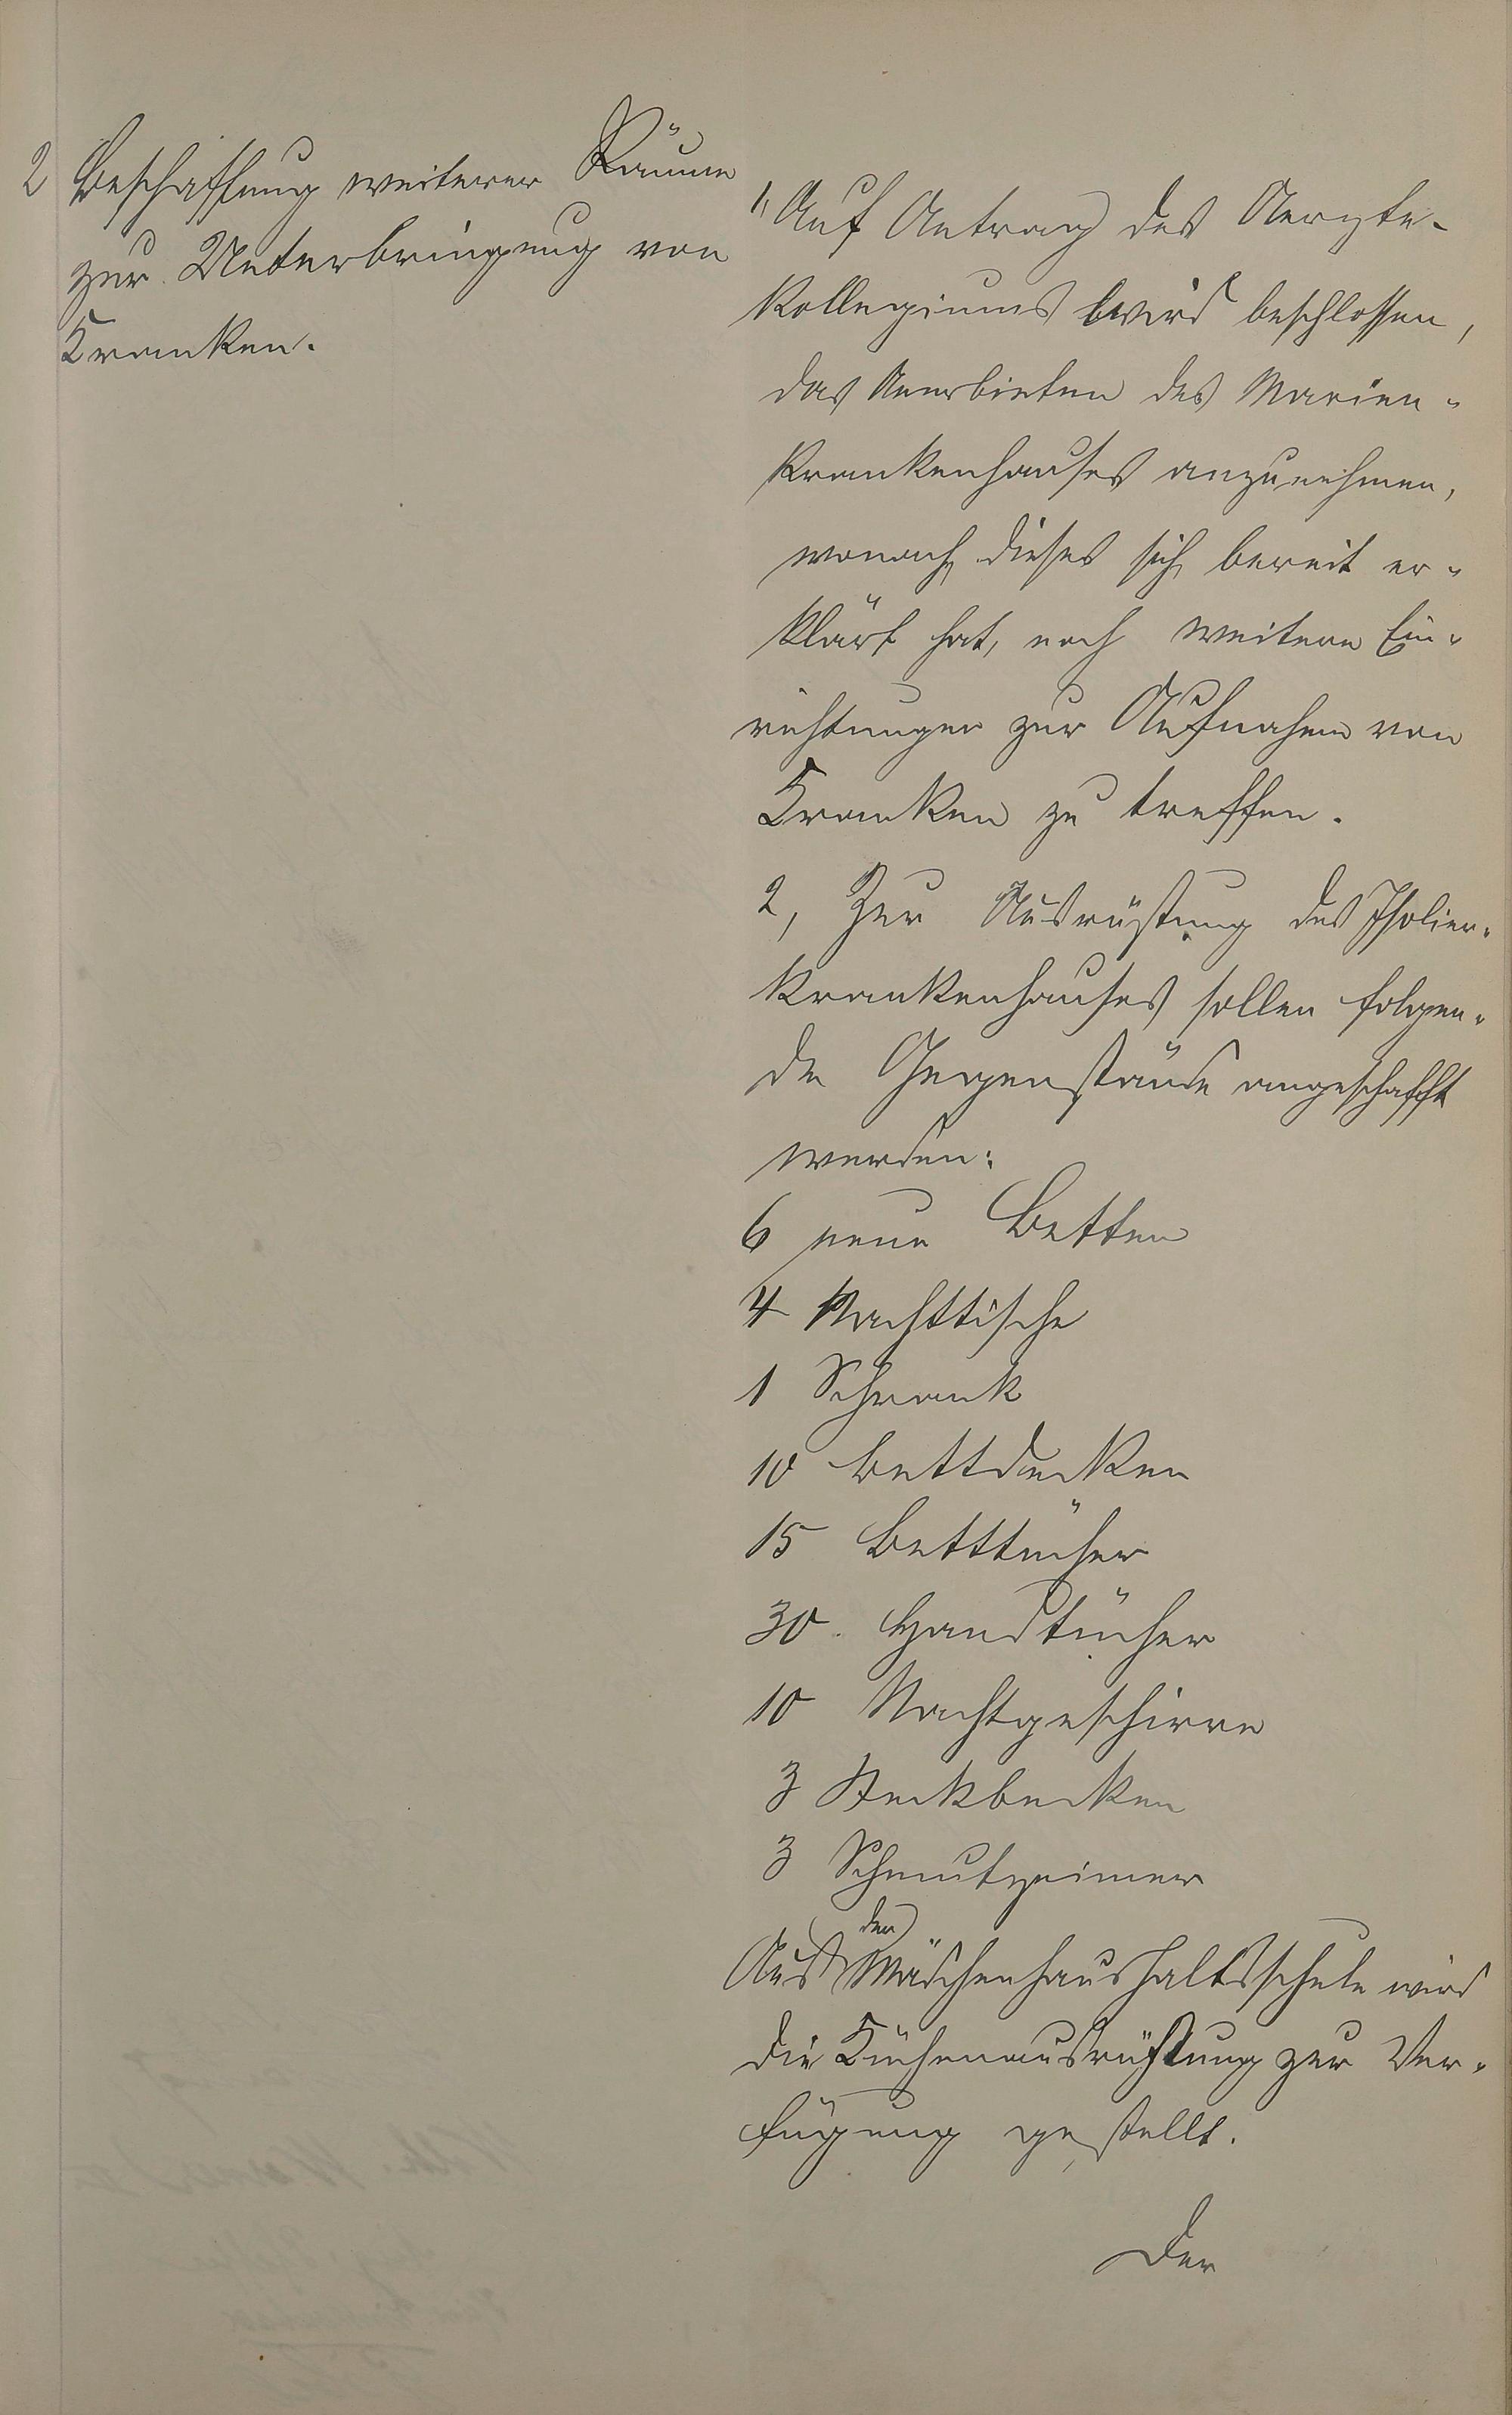 2 Beschaffung weiterer Räume
zur Unterbringung von
Kranken.
1, Auf Antrag des Aerzte-
kollegiums wird beschlossen,
das Anerbieten des Marien-
krankenhauses anzunehmen,
wonach dieses sich bereit er-
klärt hat, noch weitere Ein-
richtungen zur Aufnahme von
Kranken zu treffen.
2, Zur Ausrüstung des Isolier-
krankenhauses sollen folgen-
de Gegenstände angeschafft
werden:
6 neue Betten
4 Nachttische
1 Schrank
10 Bettdecken
15 Betttücher
30 Handtücher
10 Nachtgeschirre
3 Steckbecken
3 Schmutzeimer
Aus der Mädchenhaushaltsschule wird
die Küchenausrüstung zur Ver-
fügung gestellt.
Der